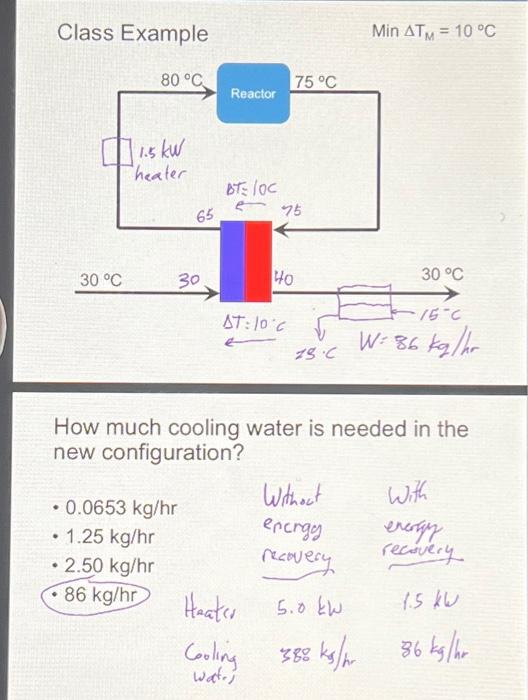 Class Example
Min ΔTM = 10 °C
80 °C
Reactor
75 °C
1.5 kW
heater
ΔT=10C
65
75
30 °C
30
40
30 °C
ΔT:10°C
15°C
W= 86 kg/hr
How much cooling water is needed in the
new configuration?
• 0.0653 kg/hr
• 1.25 kg/hr
• 2.50 kg/hr
• 86 kg/hr
Without
energy
recovery
With
energy
recovery
Heater 5.0 kW 1.5 kW
Cooling 388 kg/hr 86 kg/hr
water